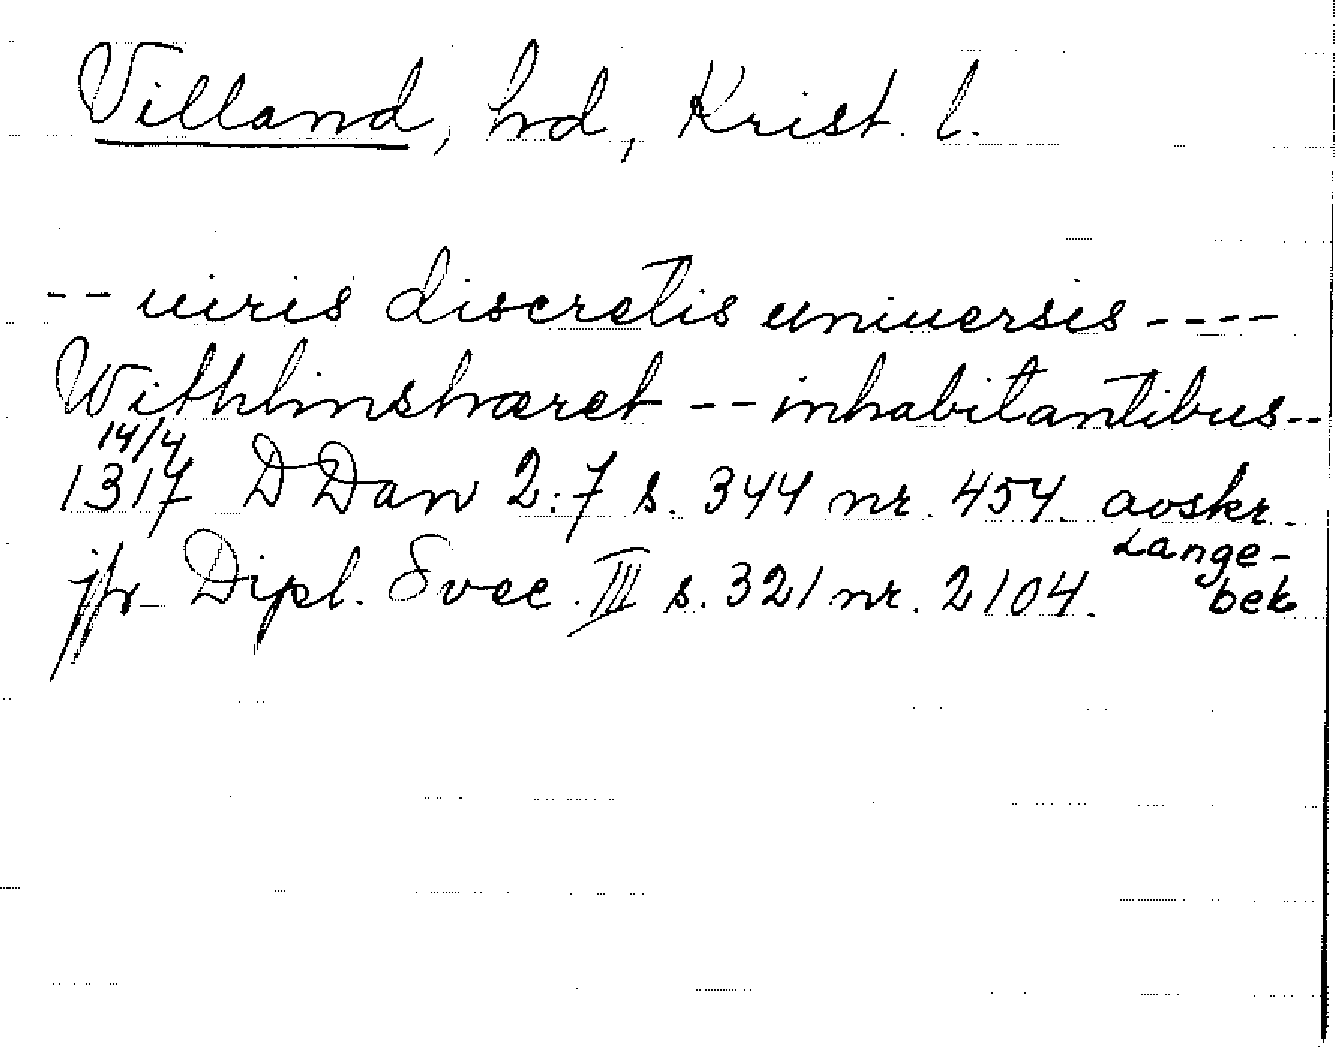 Villand, hd, Krist. l.
-- uiris discretis uniuersis ----
Withlinshæret -- inhabitantibus --
14/4
1317 DDan 2:7 s. 344 nr. 454. avskr.
Lange-
jfr Dipl. Svec. III s. 321 nr. 2104.
bek